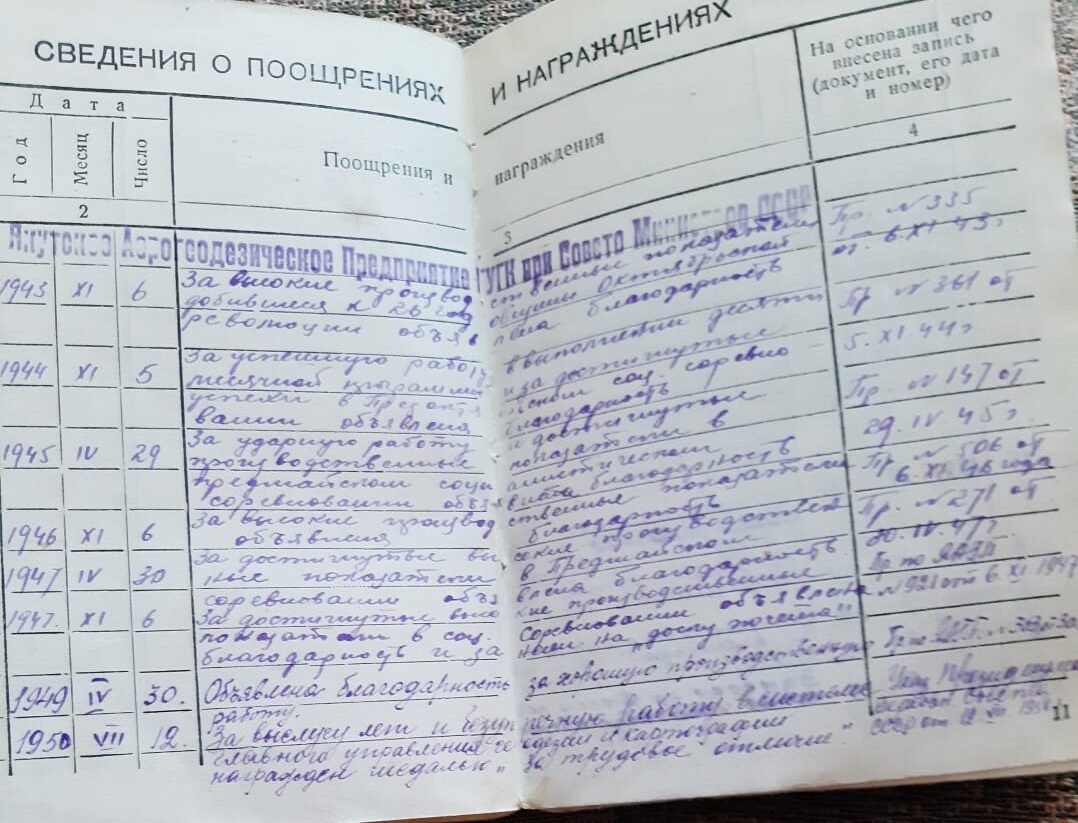 СВЕДЕНИЯ О ПООЩРЕНИЯХ И НАГРАЖДЕНИЯХ
Дата
Год
Месяц
Число
Поощрения и награждения
На основании чего
внесена запись
(документ, его дата
и номер)
2
3
4
Якутское Аэрогеодезическое Предприятие ГУГК при Совете Министров СССР
1943 XI 6 За высокие производственные показатели Пр. № 335
добившиеся к 26 год Октябрьской от. 6.XI.43г
революции объявлена благодарность
1944 XI 5 За успешную работу в выполнении десяти Пр № 361 от
месячной программы и за достигнутые 5.XI.44г
успехи в соц. соревно-
вании объявлена благодарность
1945 IV 29 За ударную работу и достигнутые Пр. № 147 от
производственные показатели в 29.IV.45г
предмайском социалистическом
соревновании объявлена благодарность
1946 XI 6 За высокие производственные показатели Пр № 506 от
объявлена благодарность 6.XI.46 года
1947 IV 30 За достигнутые высокие производствен Пр. № 271 от
ные показатели в Предмайском 30.IV.47г
соревновании объявлена благодарность
1947. XI 6 За достигнутые высокие производственные Пр по ЯАГП
показатели в соц. соревновании объявлена № 921 от 6.XI 1947
благодарность и "доску почета"
1949 IV 30. Объявлена благодарность за хорошую производственную
работу.
1950 VII 12. За выслугу лет и безупречную работу в системе Указ Президиума
главного управления геодезии и картографии
награжден медалью „За трудовое отличие".
11